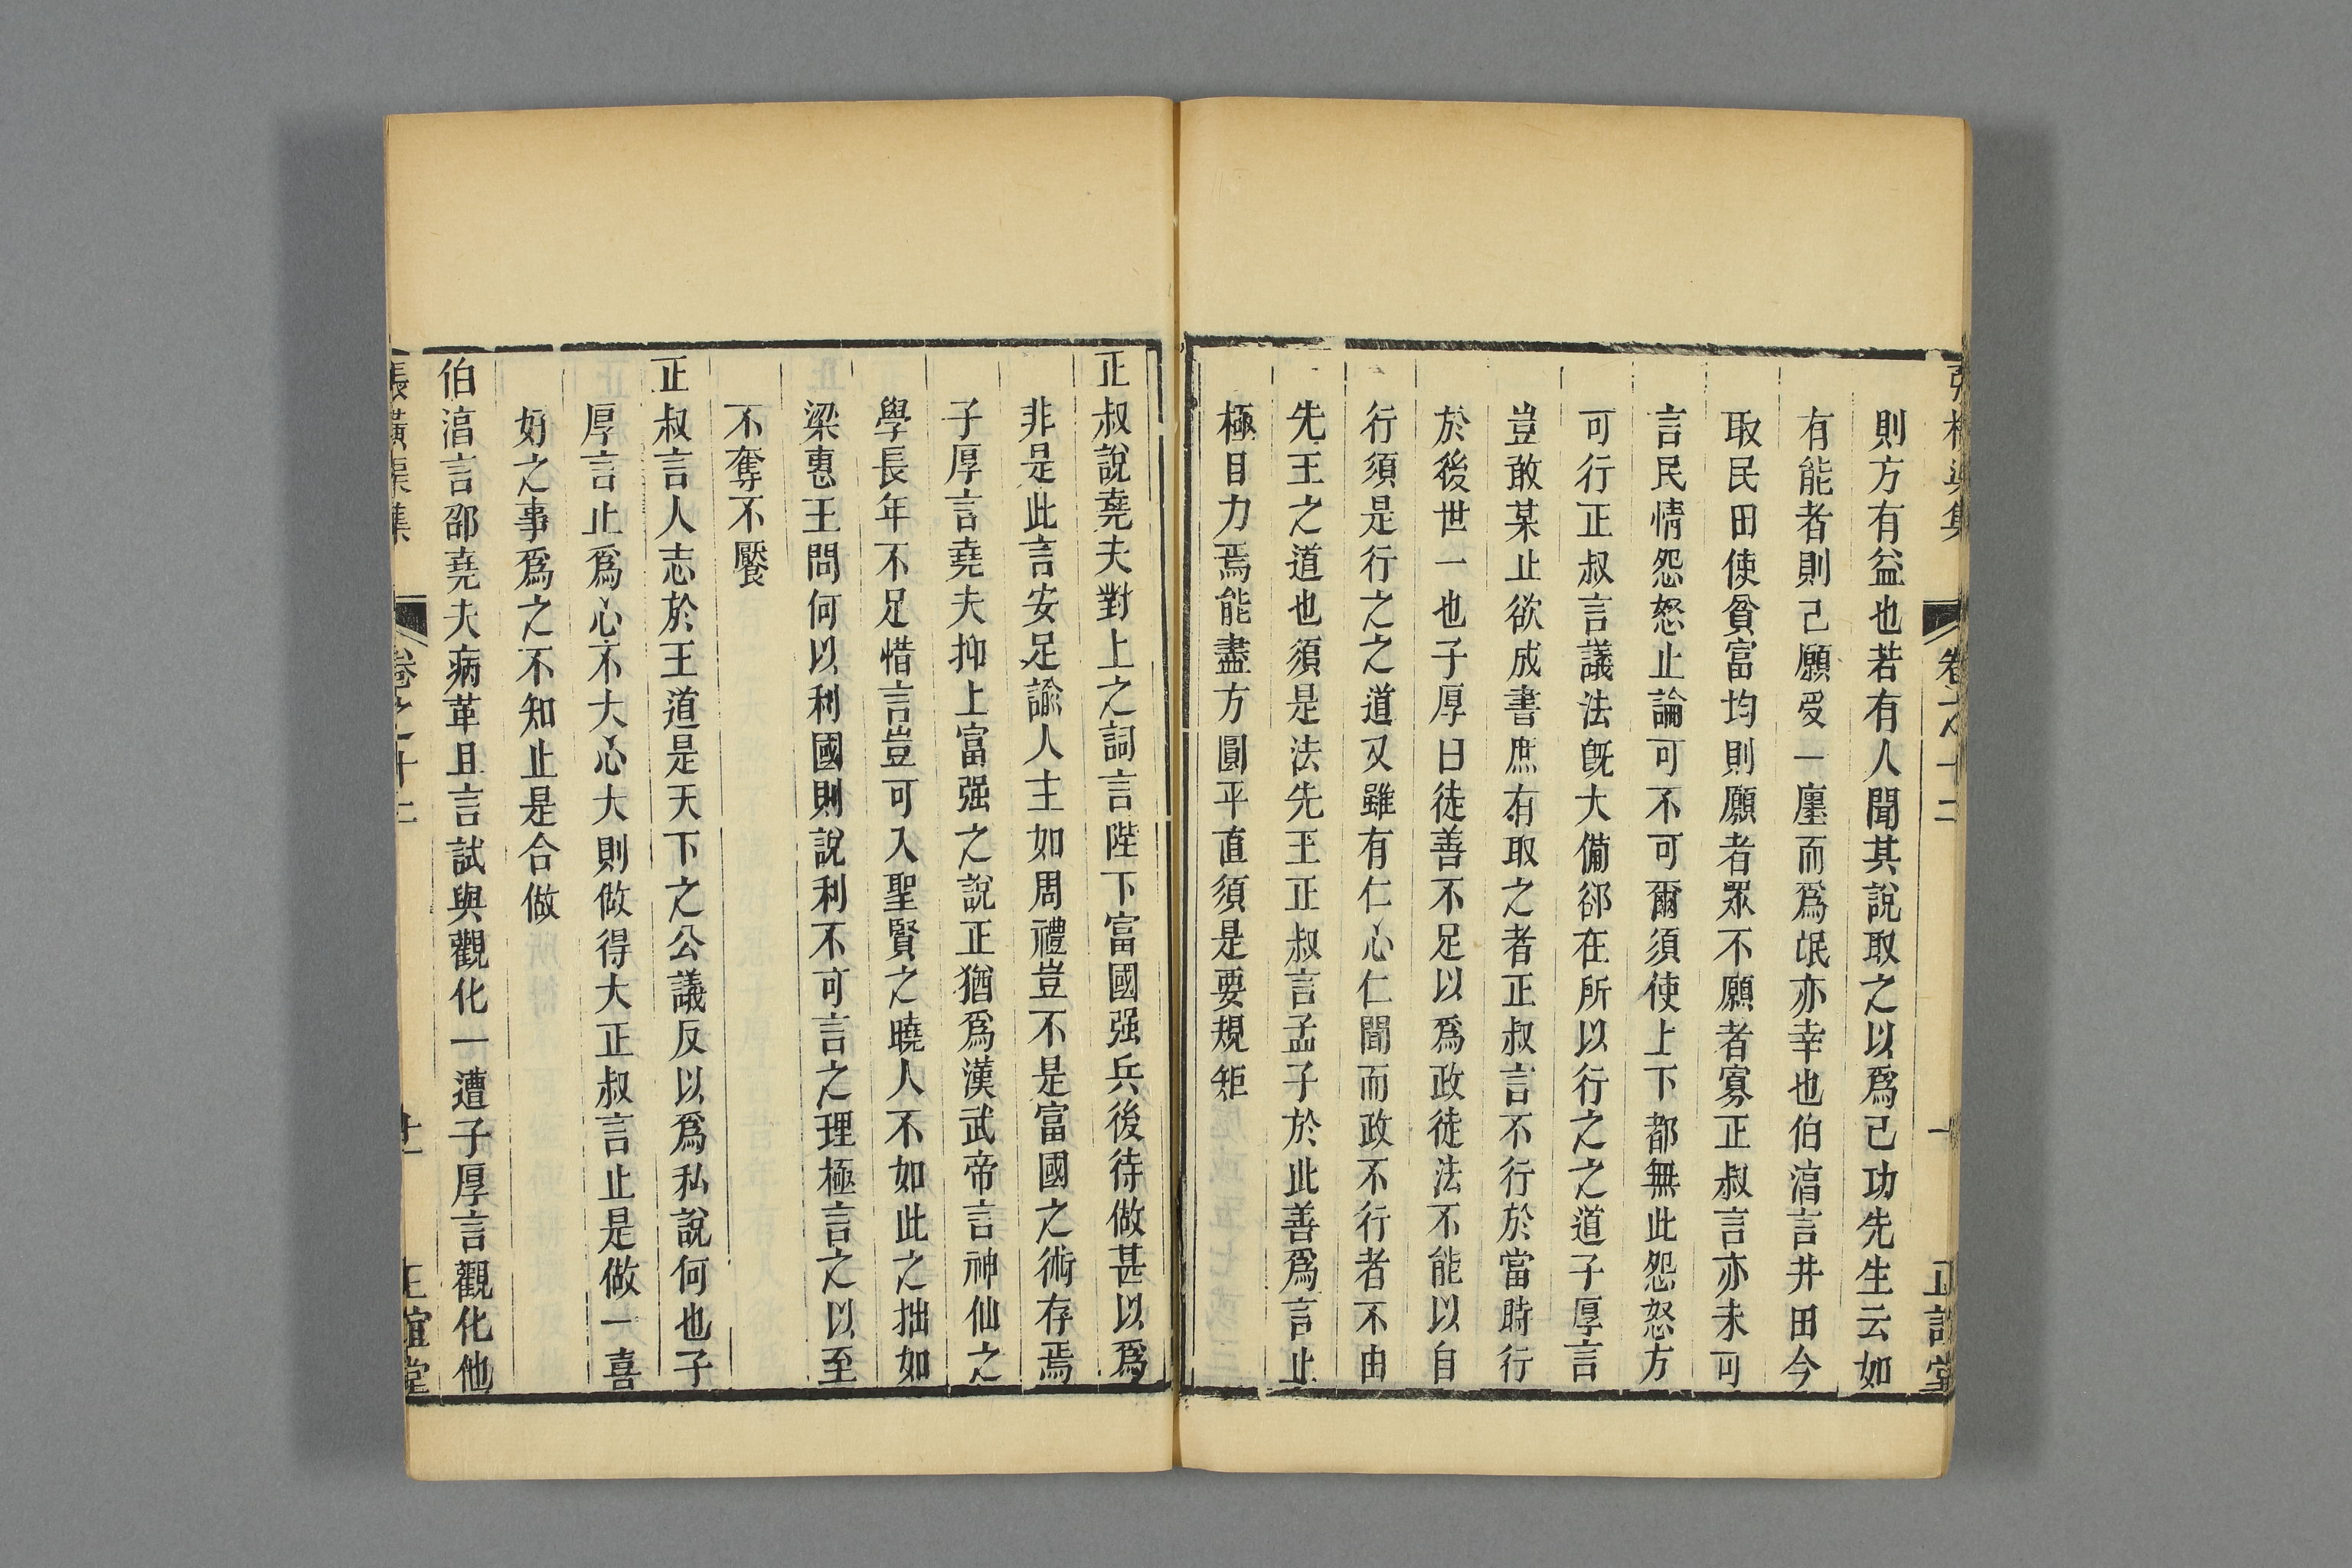 則方有益也若有人聞其說取之以爲己功先生云如
有能者則己願受一廛而爲氓亦幸也伯淯言井田今
取民田使貧富均則願者眾不願者寡正叔言亦未可
言民情怨怒止論可不可爾須使上下都無此怨怒方
可行正叔言議法旣大備郤在所以行之之道子厚言
豈敢某止欲成書庶有取之者正叔言不行於當時行
於後世一也子厚曰徒善不足以爲政徒法不能以自
行須是行之之道又雖有仁心仁聞而政不行者不由
先王之道也須是法先王正叔言孟子於此善爲言止
極目力焉能盡方圓平直須是要規矩
正叔說堯夫對上之詞言陛下富國强兵後待做甚以爲
非是此言安足諭人主如周禮豈不是富國之術存焉
子厚言堯夫抑上富强之說正猶爲漢武帝言神仙之
學長年不足惜言豈可入聖賢之曉人不如此之拙如
梁惠王問何以利國則說利不可言之理極言之以至
不奪不饜
正叔言人志於王道是天下之公議反以爲私說何也子
厚言止爲心不大心大則做得大正叔言止是做一喜
好之事爲之不知止是合做
伯淯言邵堯夫病革且言試與觀化一遭子厚言觀化他
張橫渠集
卷之十二
十一
正誼堂